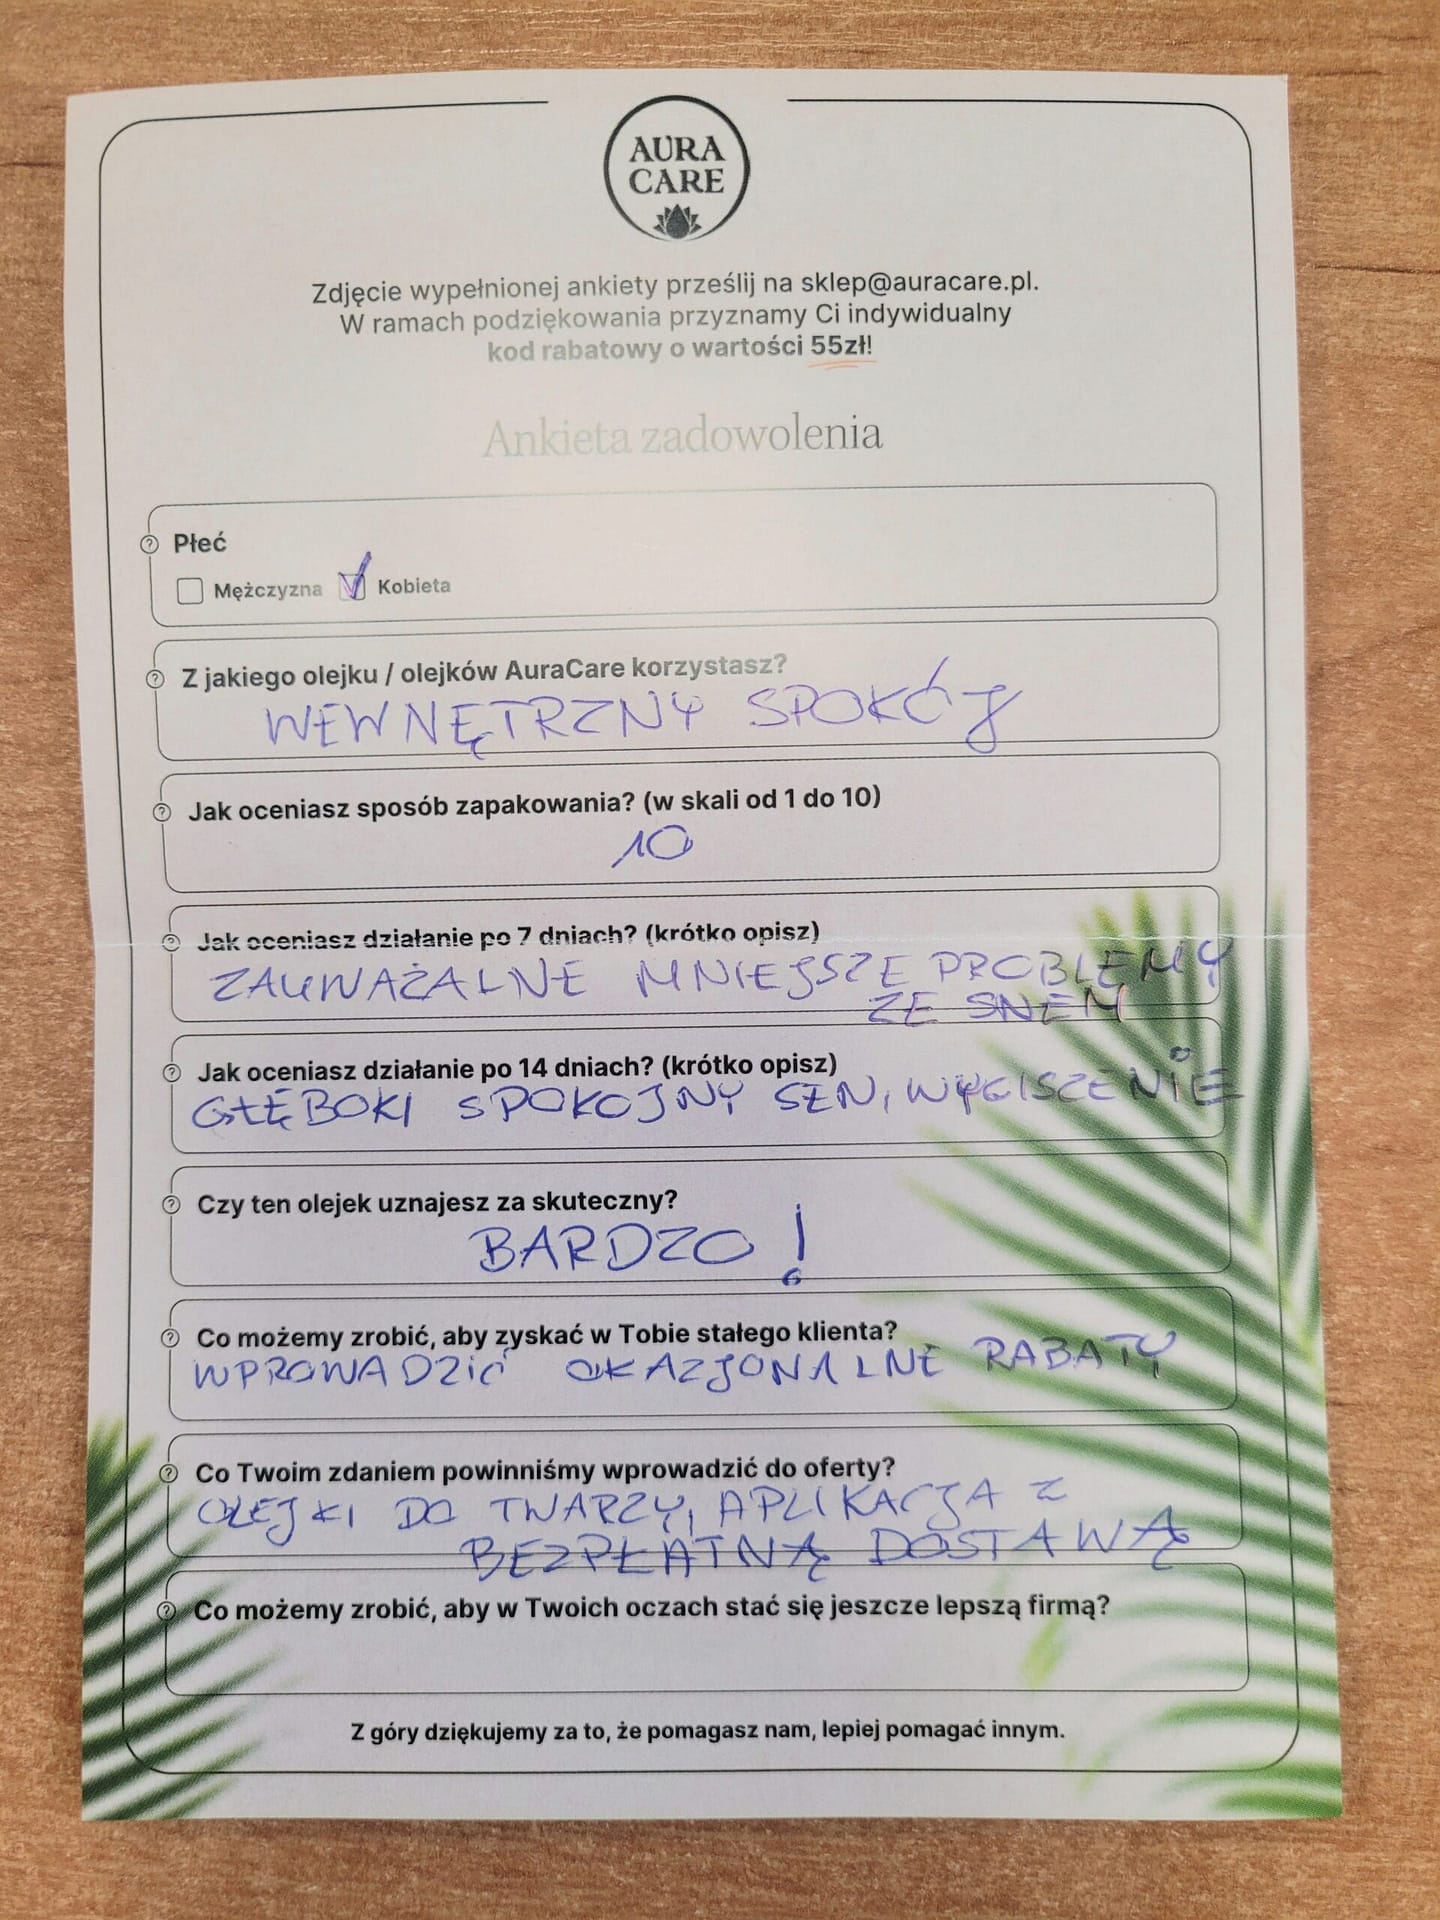 AURA
CARE
Zdjęcie wypełnionej ankiety prześlij na sklep@auracare.pl.
W ramach podziękowania przyznamy Ci indywidualny
kod rabatowy o wartości 55zł!
Ankieta zadowolenia
Płeć
Mężczyzna Kobieta
Z jakiego olejku / olejków AuraCare korzystasz?
WEWNĘTRZNY SPOKÓJ
Jak oceniasz sposób zapakowania? (w skali od 1 do 10)
10
Jak oceniasz działanie po 7 dniach? (krótko opisz)
ZAUWAŻALNE MNIEJSZE PROBLEMY
ZE SNEM
Jak oceniasz działanie po 14 dniach? (krótko opisz)
GŁĘBOKI SPOKOJNY SEN, WYCISZENIE
Czy ten olejek uznajesz za skuteczny?
BARDZO!
Co możemy zrobić, aby zyskać w Tobie stałego klienta?
WPROWADZIĆ OKAZJONALNE RABATY
Co Twoim zdaniem powinniśmy wprowadzić do oferty?
OLEJKI DO TWARZY, APLIKACJA Z
BEZPŁATNĄ DOSTAWĄ
Co możemy zrobić, aby w Twoich oczach stać się jeszcze lepszą firmą?
Z góry dziękujemy za to, że pomagasz nam, lepiej pomagać innym.